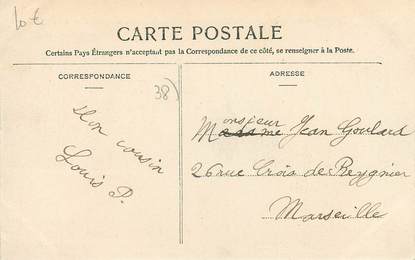 Lot
CARTE POSTALE
Certains Pays Étrangers n'acceptant pas la Correspondance de ce côté, se renseigner à la Poste.
CORRESPONDANCE
ADRESSE
38)
Mon cousin
Louis P.
Monsieur Jean Goulard
26 rue Croix de Reygnier
Marseille